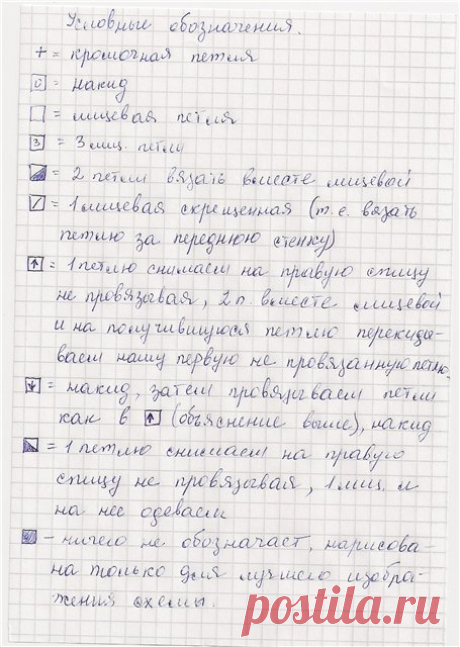 Условные обозначения.
+ = кромочная петля
O = накид
= лицевая петля
3 = 3 лиц. петли
= 2 петли вязать вместе лицевой
/ = 1 лицевая скрещенная (т.е. вязать
петлю за переднюю стенку)
↑ = 1 петлю снимаем на правую спицу
не провязывая, 2 п. вместе лицевой
и на получившуюся петлю перекиды-
ваем нашу первую не провязанную петлю.
↓ = накид, затем провязываем петли
как в ↑ (объяснение выше), накид
= 1 петлю снимаем на правую
спицу не провязывая, 1 лиц. и
на нее одеваем
- ничего не обозначает, нарисова-
на только для лучшего изобра-
жения схемы.
postila.ru